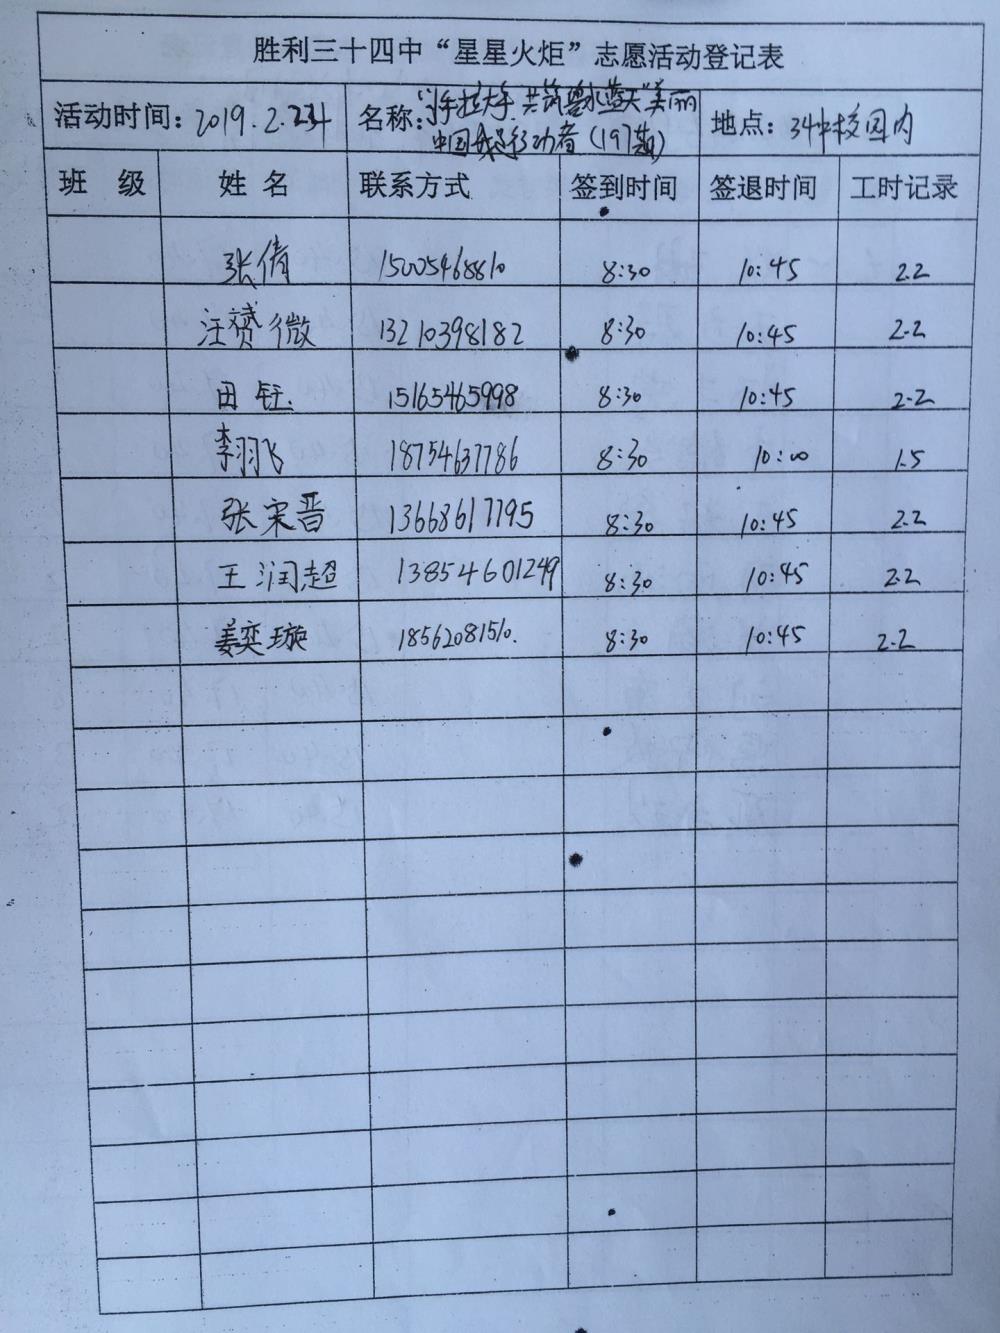 胜利三十四中“星星火炬”志愿活动登记表
活动时间：2019.2.23 名称：“小手拉大手 共筑碧水蓝天”美丽 地点：34中校园内
中国我是行动者（197期）
班 级 姓 名 联系方式 签到时间 签退时间 工时记录
张倩 15005468810 8:30 10:45 2.2
汪赟微 13210398182 8:30 10:45 2.2
田钰 15165465998 8:30 10:45 2.2
李羽飞 18754637786 8:30 10:00 1.5
张宋晋 13668617795 8:30 10:45 2.2
王润超 13854601249 8:30 10:45 2.2
姜奕璇 18562081510. 8:30 10:45 2.2